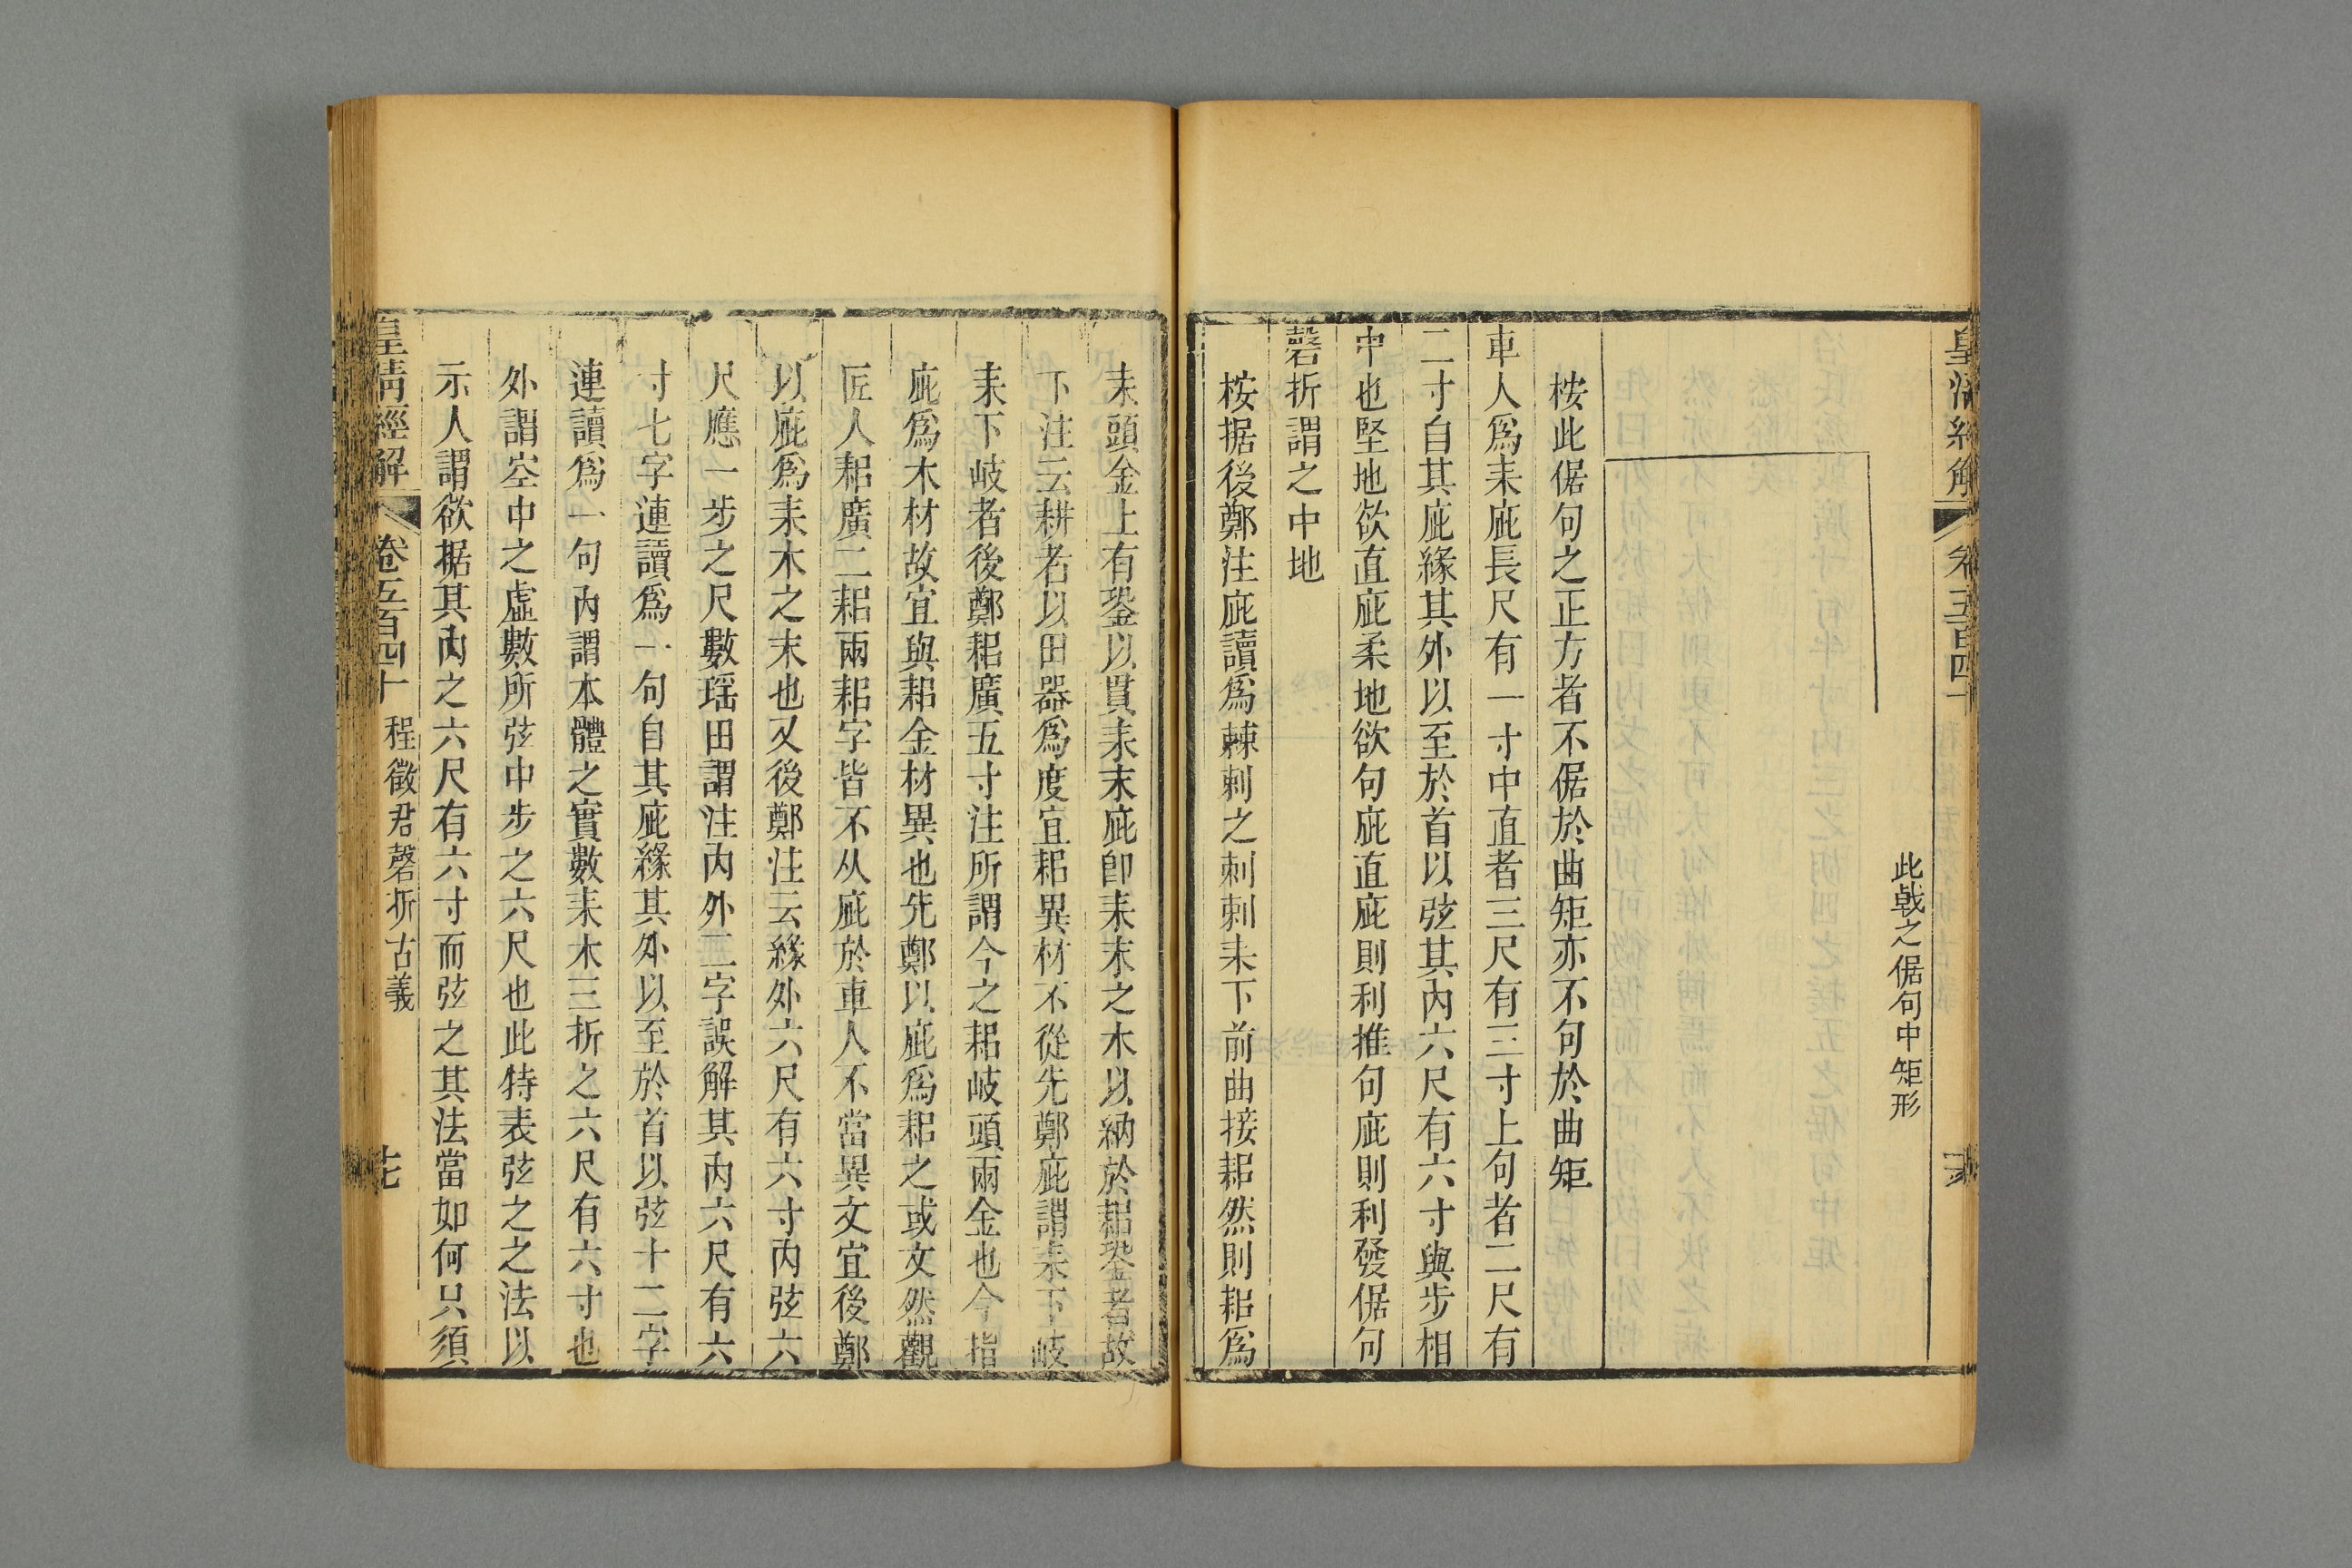 皇清經解
卷五百四十
此戟之倨句中矩形
桉此倨句之正方者不倨於曲矩亦不句於曲矩
車人爲耒庛長尺有一寸中直者三尺有三寸上句者二尺有
二寸自其庛緣其外以至於首以弦其內六尺有六寸與步相
中也堅地欲直庛柔地欲句庛直庛則利推句庛則利發倨句
磬折謂之中地
桉据後鄭注庛讀爲棘刺之刺刺耒下前曲接耜然則耜爲
耒頭金上有銎以貫耒末庛卽耒末之木以納於耜銎者故
下注云耕者以田器爲度宜耜異材不從先鄭庛謂耒下岐
耒下岐者後鄭耜廣五寸注所謂今之耜岐頭兩金也今指
庛爲木材故宜與耜金材異也先鄭以庛爲耜之或文然觀
匠人耜廣二耜兩耜字皆不从庛於車人不當異文宜後鄭
以庛爲耒木之末也又後鄭注云緣外六尺有六寸內弦六
尺應一步之尺數瑶田謂注內外二字誤解其內六尺有六
寸七字連讀爲一句自其庛緣其外以至於首以弦十二字
連讀爲一句內謂本體之實數耒木三折之六尺有六寸也
外謂空中之虛數所弦中步之六尺也此特表弦之之法以
示人謂欲据其內之六尺有六寸而弦之其法當如何只須
皇清經解
卷五百四十
程徵君磬折古義